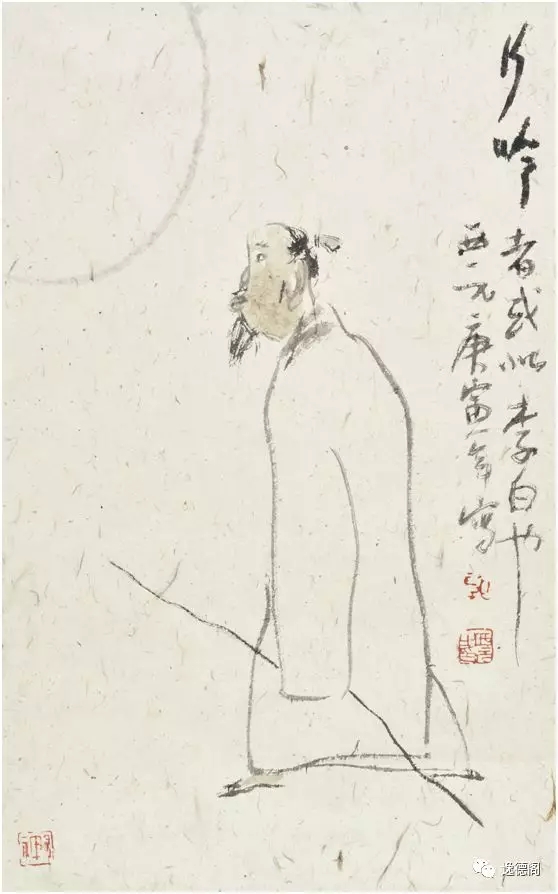 行吟者或似李白也
西元庚寅年写
逸德阁